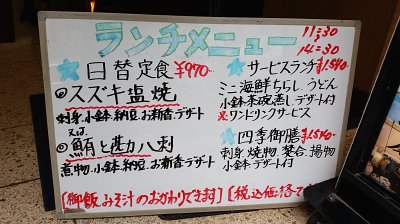 ランチメニュー
11:30
〜
14:30
日替定食 ¥970
スズキ塩焼
刺身、小鉢、納豆、お新香、デザート
又は
鮪と勘八刺
煮物、小鉢、納豆、お新香、デザート
サービスランチ ¥1,540
ミニ海鮮ちらし、うどん
小鉢、茶碗蒸し、デザート付
※ワンドリンクサービス
四季御膳 ¥1,540
刺身、焼物、煮合、揚物
小鉢、デザート付
[御飯、みそ汁のおかわりできます]